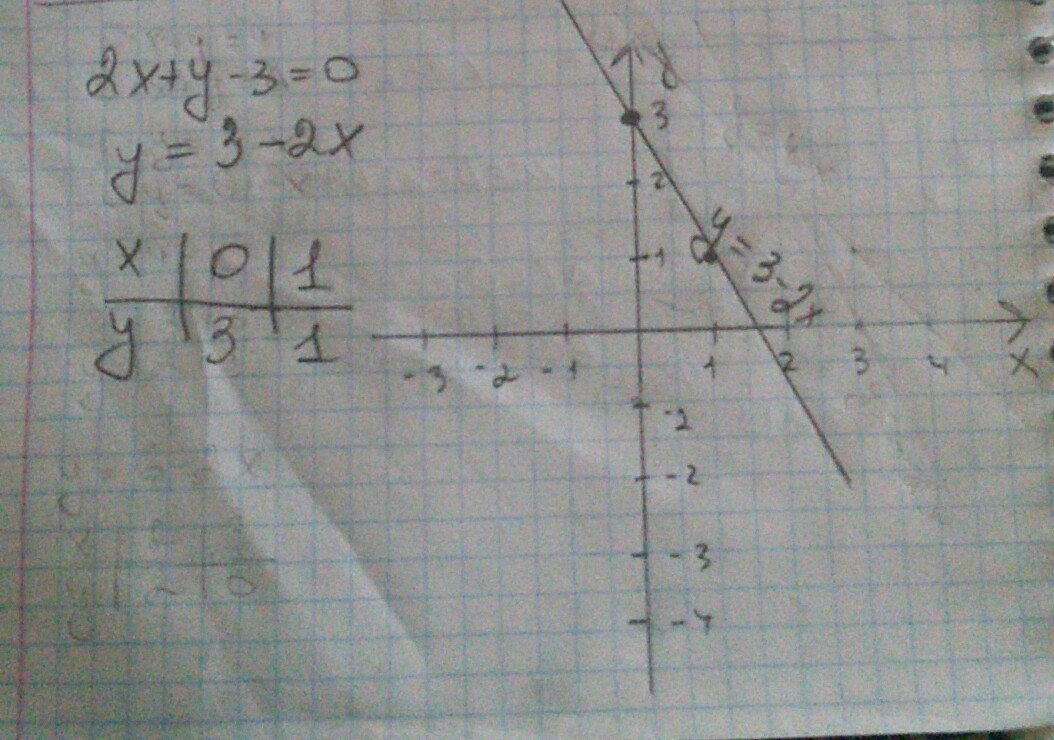 2x+y-3=0
y = 3-2x
x | 0 | 1
y | 3 | 1
y
3
2
1
y = 3-2x
-3 -2 -1 1 2 3 4 x
-2
-2
-3
-4